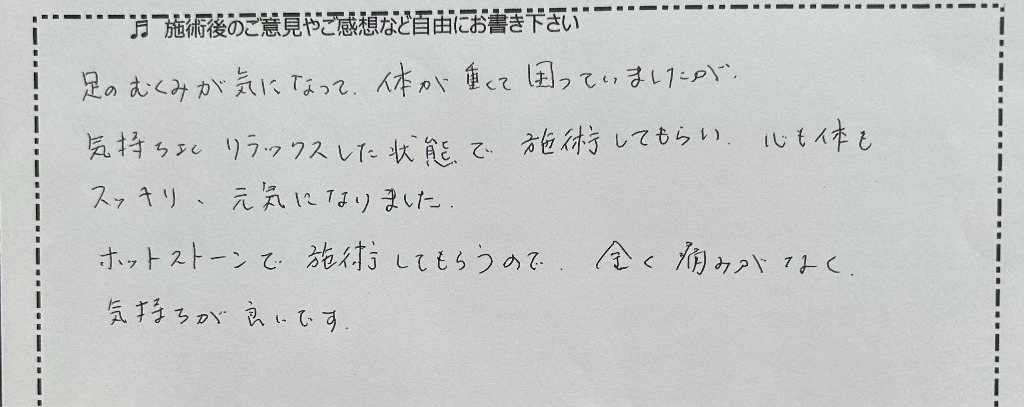 ♬ 施術後のご意見やご感想など自由にお書き下さい
足のむくみが気になって、体が重くて困っていましたが、
気持ちよくリラックスした状態で施術してもらい、心も体も
スッキリ、元気になりました。
ホットストーンで施術してもらうので、全く痛みがなく、
気持ちが良いです。